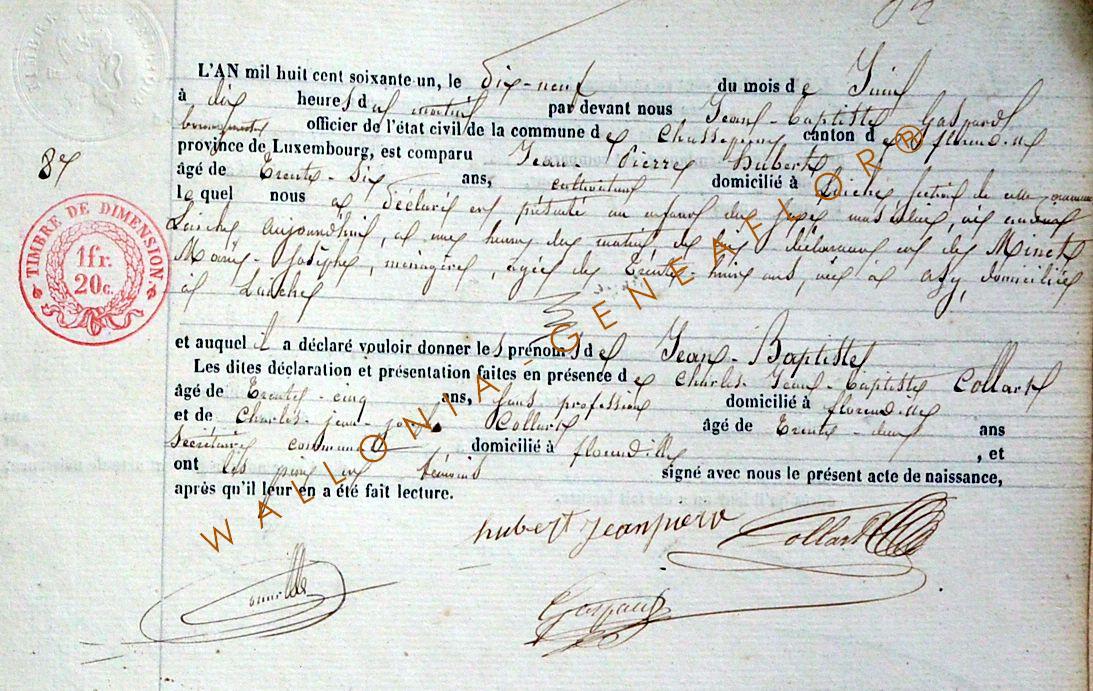 TIMBRE DE DIMENSION.
1 fr.
20 c.
L'AN mil huit cent soixante un, le dix-neuf du mois de Juin
à dix heures du matin par devant nous Jean-Baptiste Gaspard
bourgmestre officier de l'état civil de la commune de Chassepierre canton de florenville
province de Luxembourg, est comparu Jean Pierre Hubert
âgé de Trente-six ans, cultivateur domicilié à Laiche, section de cette commune
lequel nous a déclaré et présenté un enfant du sexe masculin, né audit
Laiche aujourd'hui, à une heure du matin de lui déclarant et de Minet
Marie-Josèphe, ménagère, âgée de Trente-huit ans, née à azy, domiciliée
à Laiche
et auquel il a déclaré vouloir donner les prénoms de Jean-Baptiste
Les dites déclaration et présentation faites en présence de Charles Jean-baptiste Collart
âgé de Trente-cinq ans, sans profession domicilié à florenville
et de Charles-jean- Collart âgé de Trente-deux ans
Secrétaire communal domicilié à florenville, et
ont les père et témoins signé avec nous le présent acte de naissance,
après qu'il leur en a été fait lecture.
hubert Jeanpierr Collart
Gaspard
WALLONIA-GENEALOR®